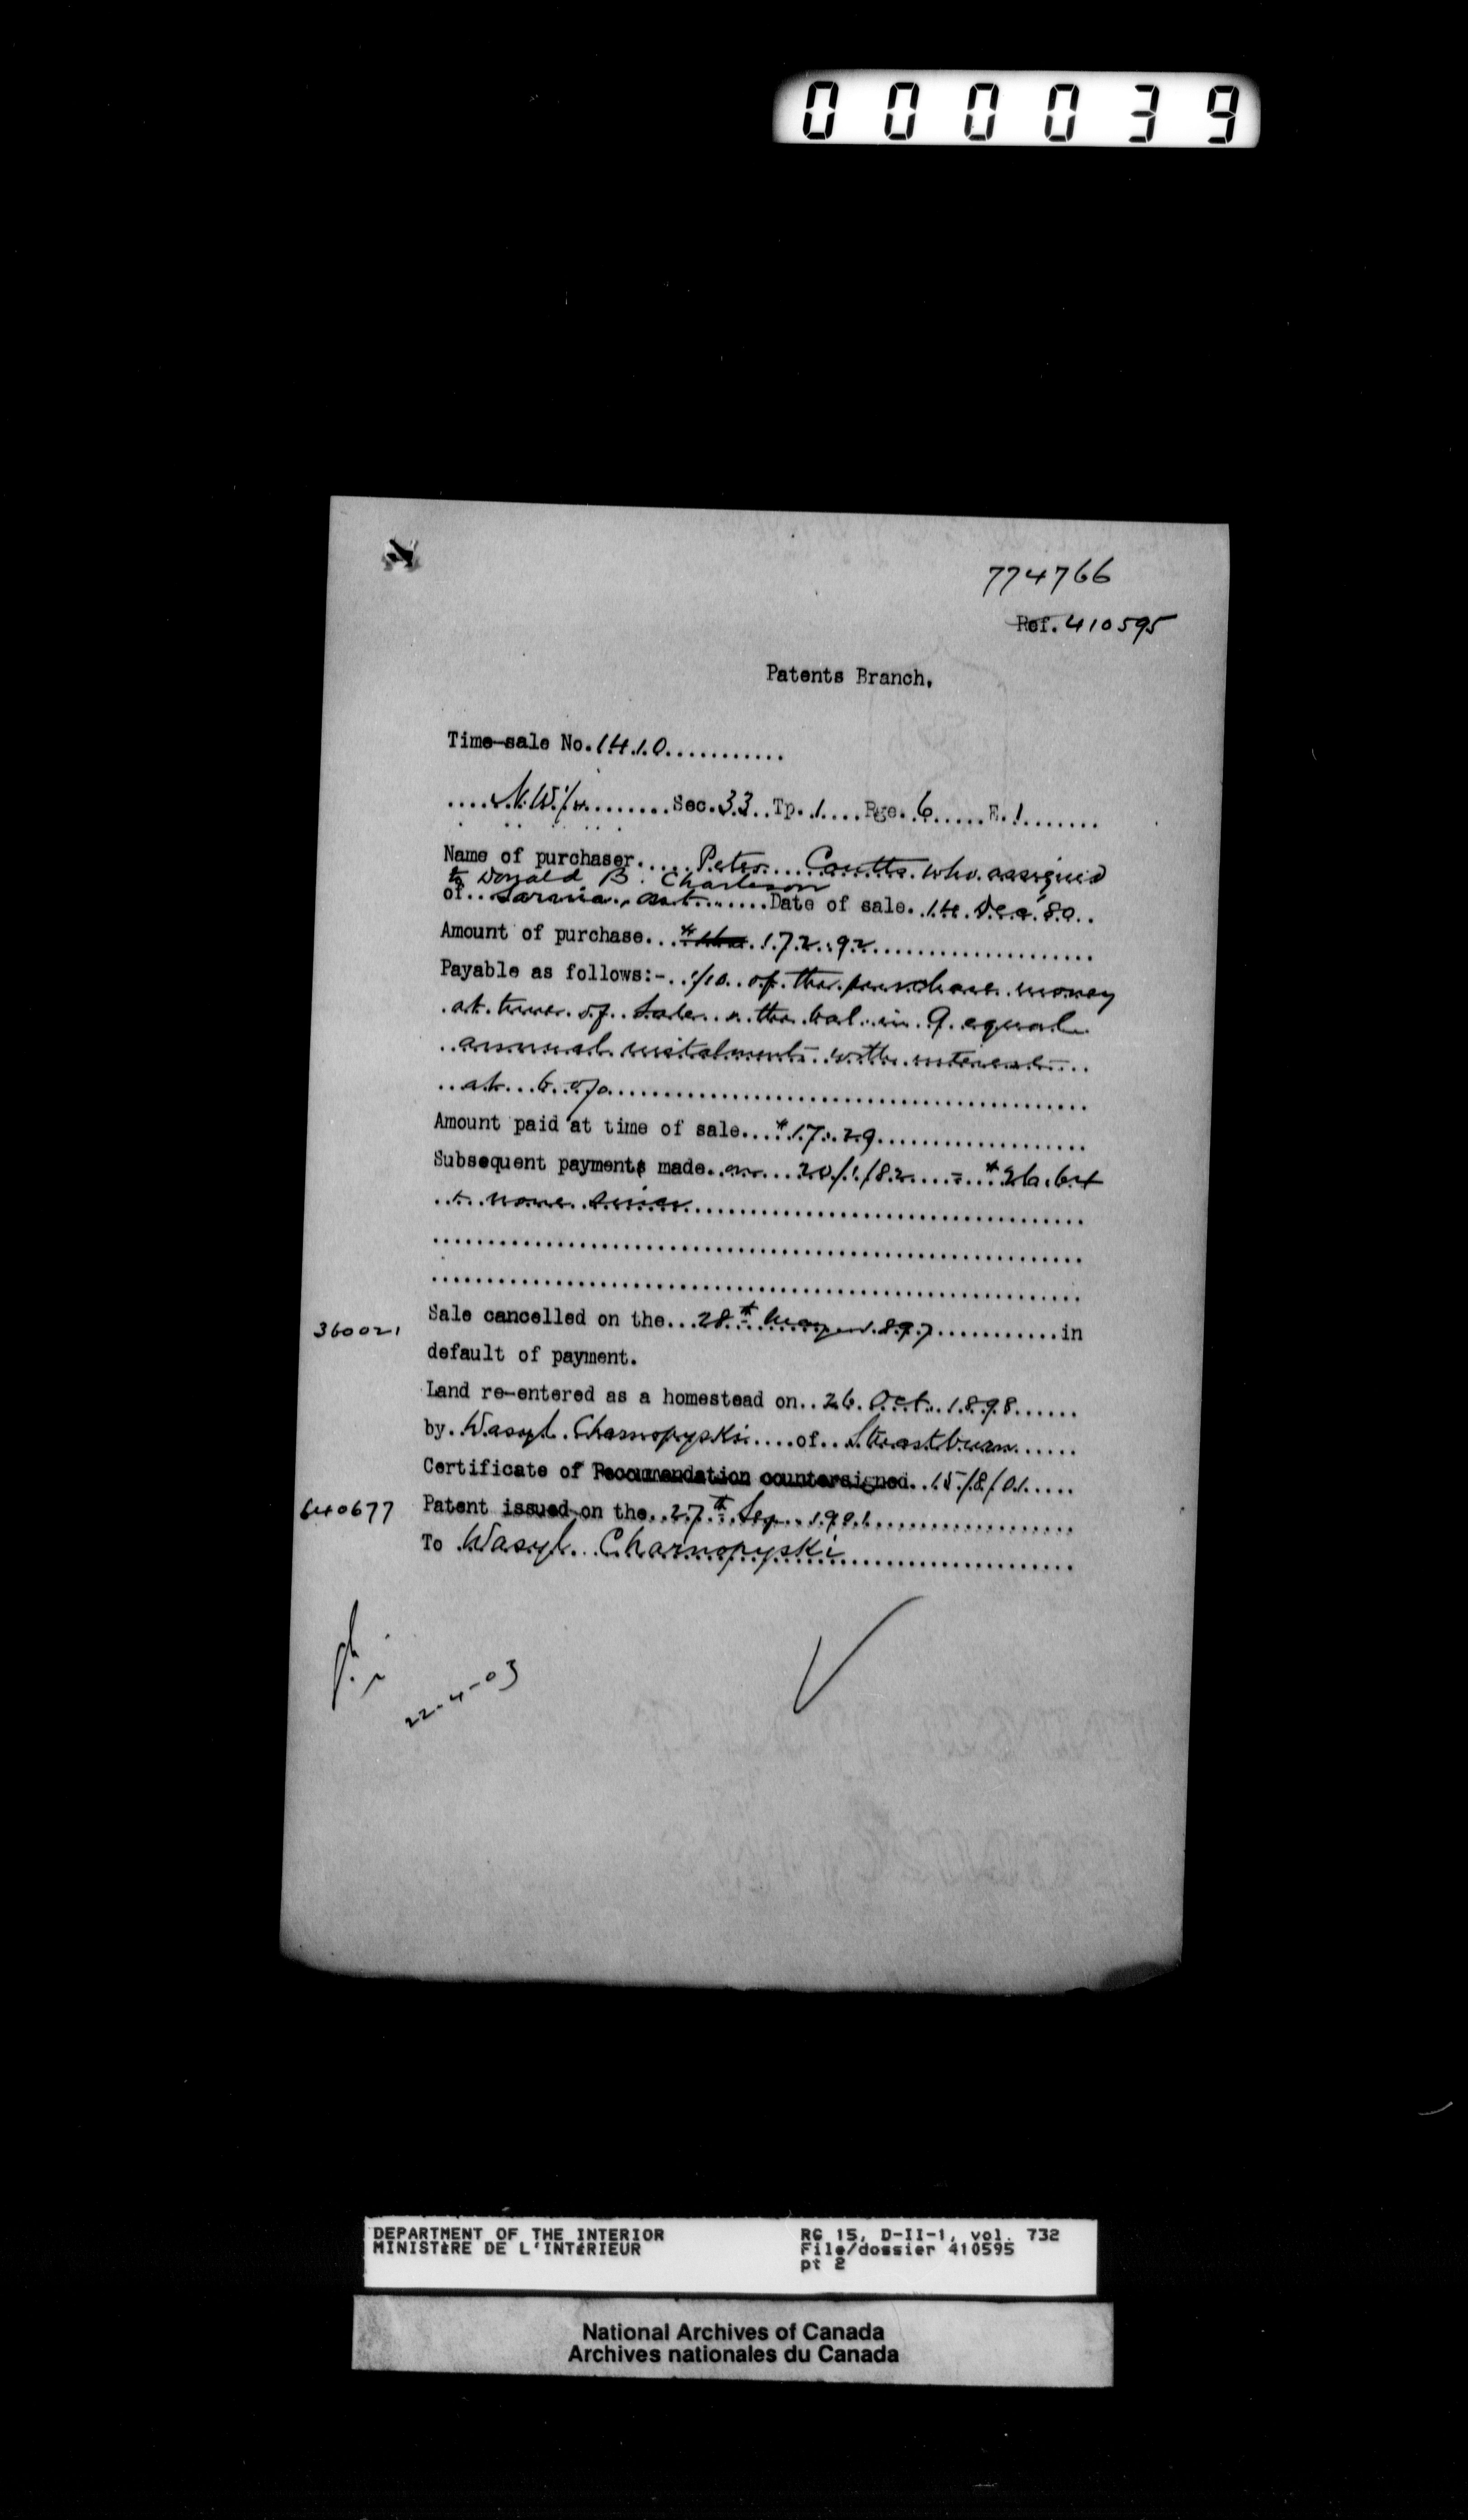 000039
774766
Ref. 410595
Patents Branch.
Time-sale No. 1410
N.W. 1/4 Sec. 33 Tp. 1 Rge. 6 E. 1
Name of purchaser Peter Coutts who assigned
to Donald B. Charleson
of Sarnia, Ont Date of sale 14 Dec '80
Amount of purchase 172.92
Payable as follows:- 1/10 of the purchase money
at time of sale & the bal. in 9 equal
annual instalments with interest
at 6 %
Amount paid at time of sale $17.29
Subsequent payments made on 20/1/82 = $26.64
& none since
Sale cancelled on the 28th May 1897 in
360021
default of payment.
Land re-entered as a homestead on 26 Oct. 1898
by Wasyl Charnopyski of Stuartburn
Certificate of Recommendation countersigned 15/8/01
640677
Patent issued on the 27th Sep 1901
To Wasyl Charnopyski
22-4-03
DEPARTMENT OF THE INTERIOR
MINISTÈRE DE L'INTÉRIEUR
RG 15, D-II-1, vol. 732
File/dossier 410595
pt 2
National Archives of Canada
Archives nationales du Canada